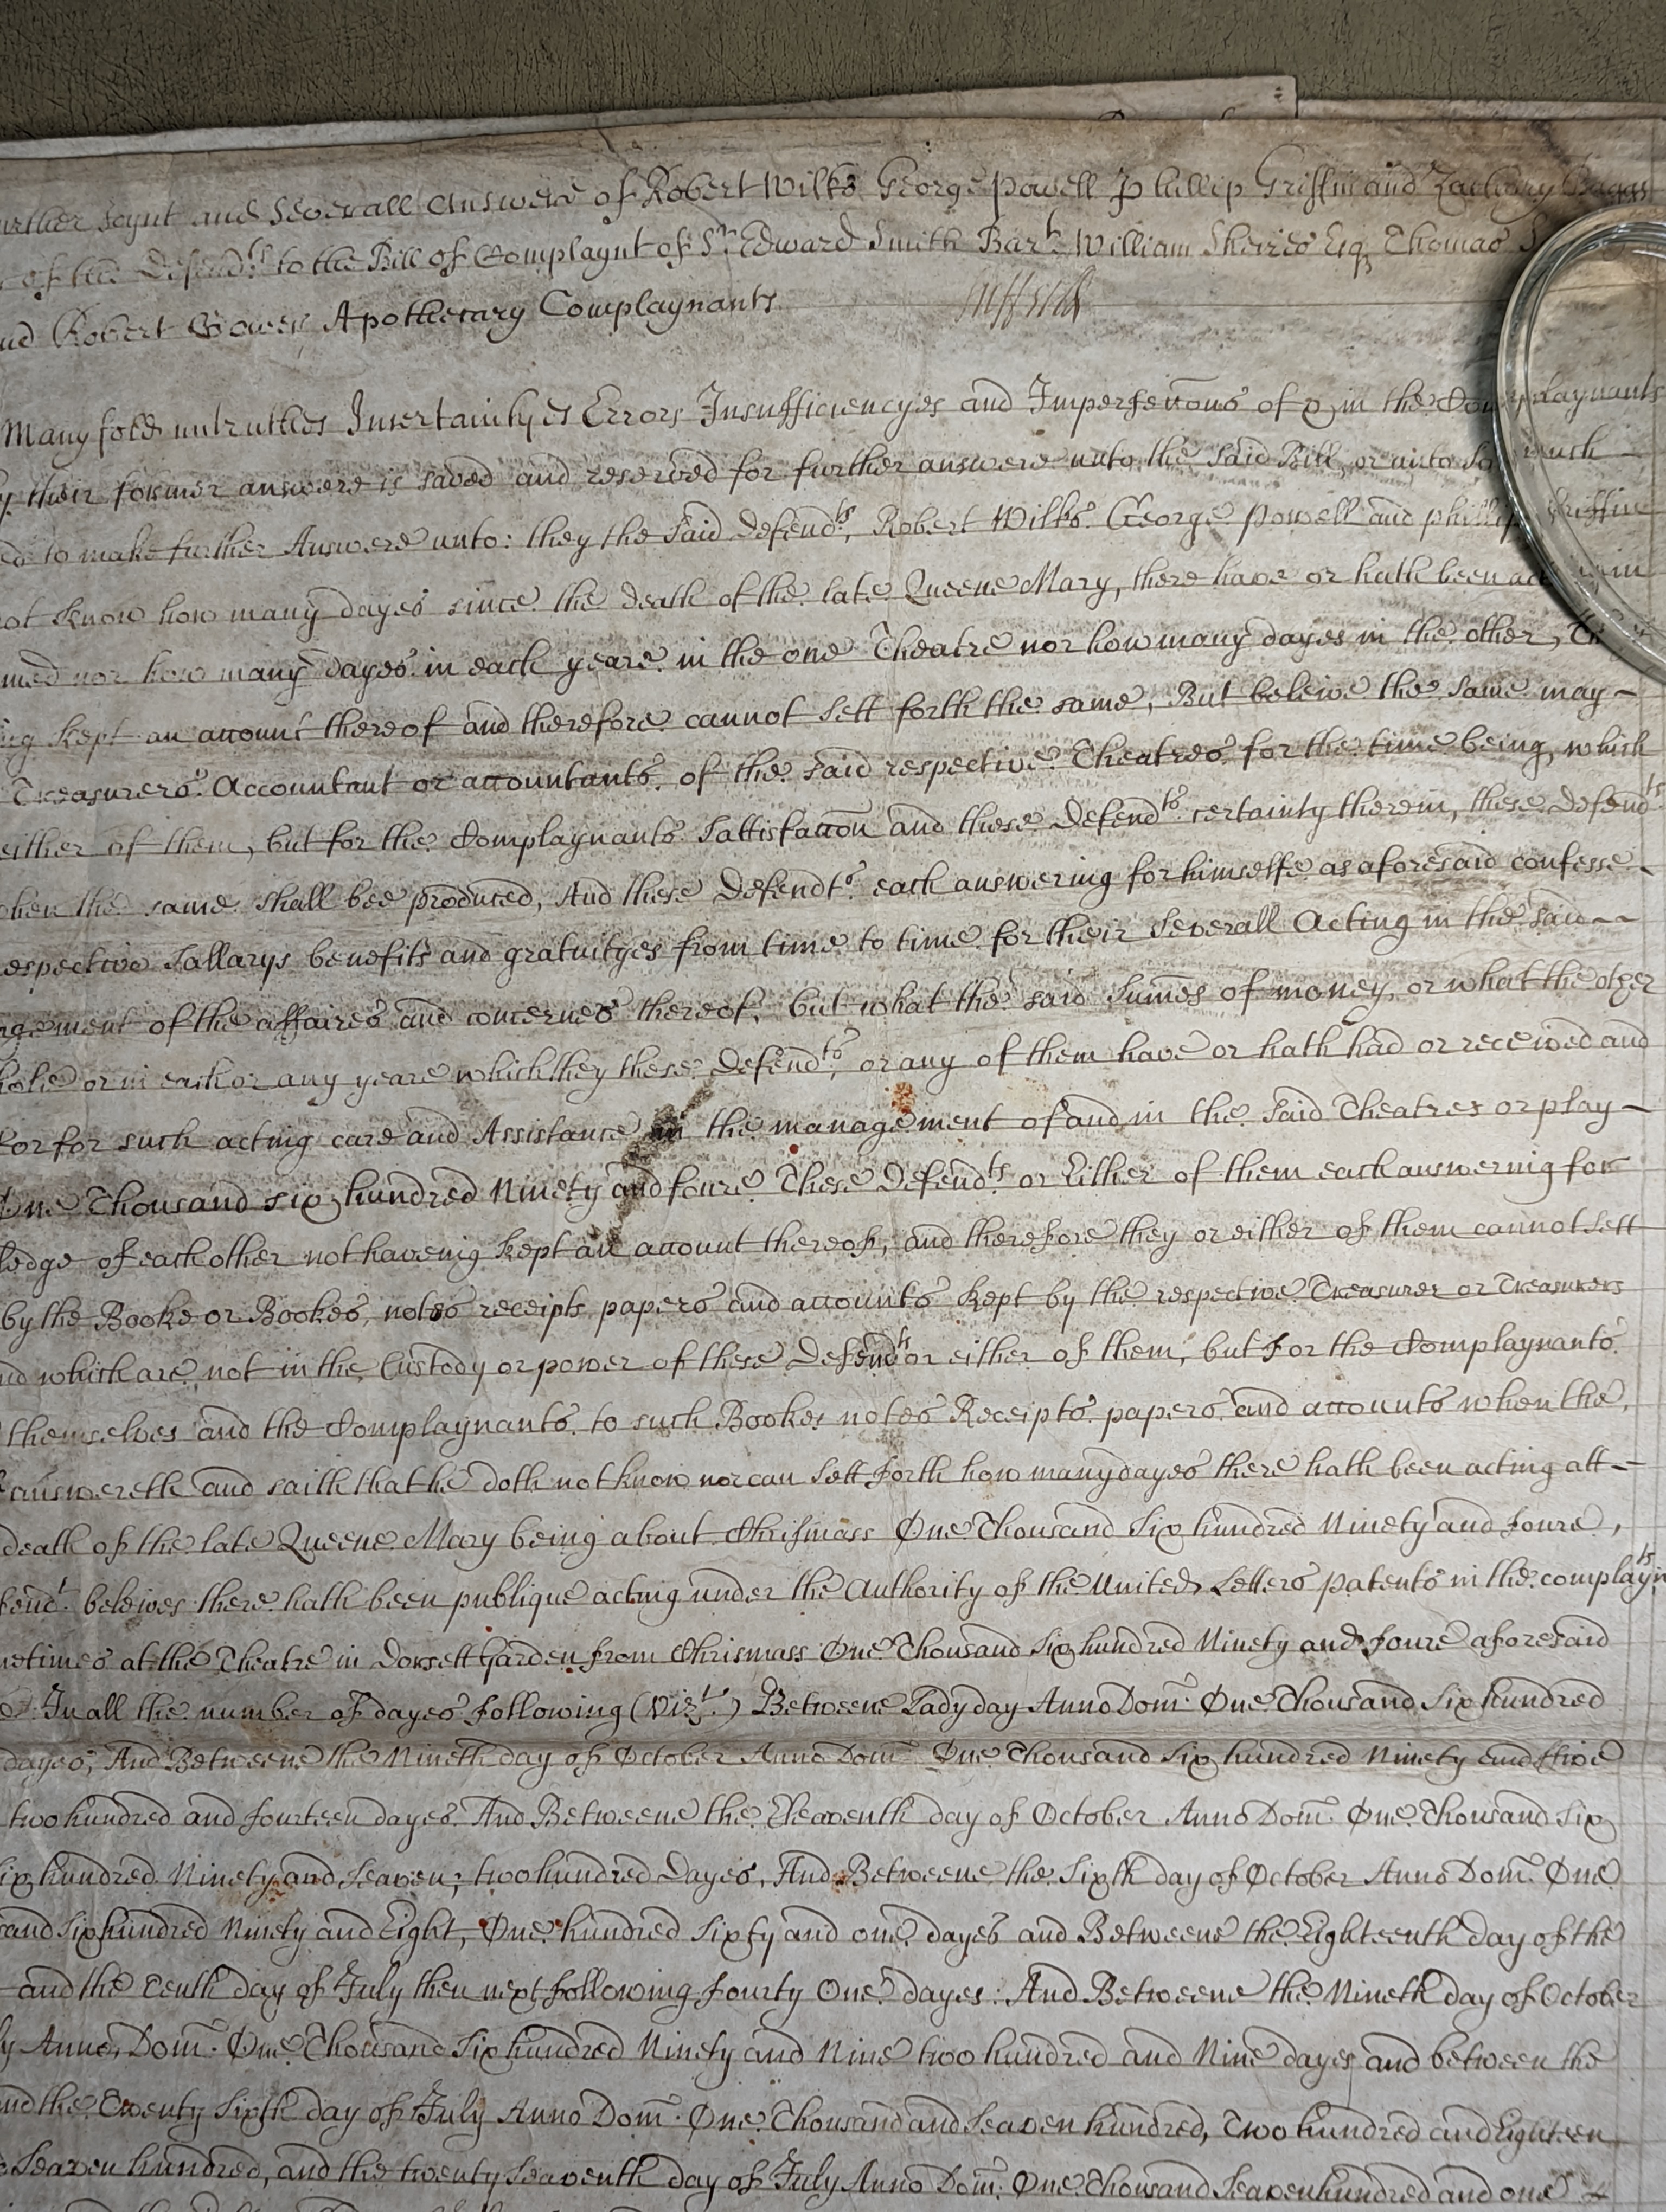 further Joynt and Severall Answere of Robert Wilks George Powell Phillip Griffin and Zachary Baggs
of the Defend.ts to the Bill of Complaynt of S.r Edward Smith Bar.t William Sheires Esq, Thomas S
and Robert Gower Apothecary Complaynants
Manyfold untruthes Incertaintyes Errors Insufficiencyes and Imperfeccons of & in the Complaynants
their former answere is saved and reserved for further answere unto the said Bill, or unto so much
to make further Answere unto: they the said Defend.ts, Robert Wilks George Powell and phillip Griffin
not know how many dayes since the death of the late Queene Mary, there have or hath been acting in
nor how many dayes in each yeare in the one Theatre nor how many dayes in the other, Th
kept an account thereof and therefore cannot sett forth the same, But beleive the same may
Treasurers Accountant or accountants of the said respective Theatres for the time being, which
either of them, but for the Complaynants sattisfaccon and these Defend.ts certainty therein, these Defend.ts
when the same shall bee produced, And these Defend.ts each answering for himselfe as aforesaid confesse
respective sallarys benefits and gratuityes from time to time for their severall Acting in the said
of the affaires and concernes thereof, but what the said sumes of money, or what the other
or in each or any yeare which they these Defend.ts, or any of them have or hath had or received and
for for such acting care and Assistance in the management of and in the said Theatres or play
One Thousand six hundred Ninety and foure These Defend.ts or Either of them each answering for
ledge of each other not haveing kept an account thereof, and therefore they or either of them cannot sett
by the Booke or Bookes, notes receipts papers and accounts kept by the respective Treasurer or Treasurers
and which are not in the Custody or power of these Defend.ts or either of them, but for the Complaynants
themselves and the Complaynants to such Bookes notes Receipts papers and accounts when the
answereth and saith that he doth not know nor can sett forth how many dayes there hath been acting att
death of the late Queene Mary being about Chrismass One Thousand Six hundred Ninety and foure,
fend.t beleives there hath been publique acting under the Authority of the United Letters patents in the complayn.ts
metimes at the Theatre in Dorsett Garden from Chrismass One Thousand Six hundred Ninety and foure aforesaid
In all the number of dayes following (viz.t) Betweene Lady day Anno Dom One Thousand Six hundred
dayes, And Betweene the Nineth day of October Anno Dom One Thousand Six hundred Ninety and ffive
two hundred and fourteen dayes And Betweene the Eleaventh day of October Anno Dom One Thousand Six
six hundred Ninety and Seaven, two hundred Dayes, And Betweene the Sixth day of October Anno Dom One
sand Six hundred Ninety and Eight, One hundred Sixty and one dayes and Betweene the Eighteenth day of the
and the Tenth day of July then next following fourty One dayes: And Betweene the Nineth day of October
ly Anno Dom One Thousand Six hundred Ninety and Nine two hundred and Nine dayes and between the
and the Twenty Sixth day of July Anno Dom One Thousand and Seaven hundred, Two hundred and Eighteen
Seaven hundred, and the twenty Seaventh day of July Anno Dom One Thousand Seaven hundred and one